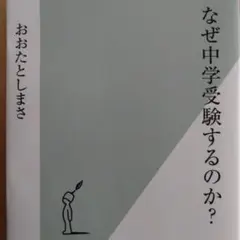 なぜ中学受験するのか?
おおたとしまさ